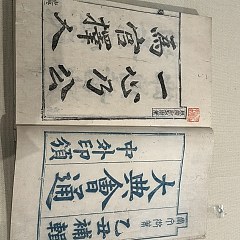 一心乃公
爲官擇人
乙丑補輯
大典會通
中外印頒